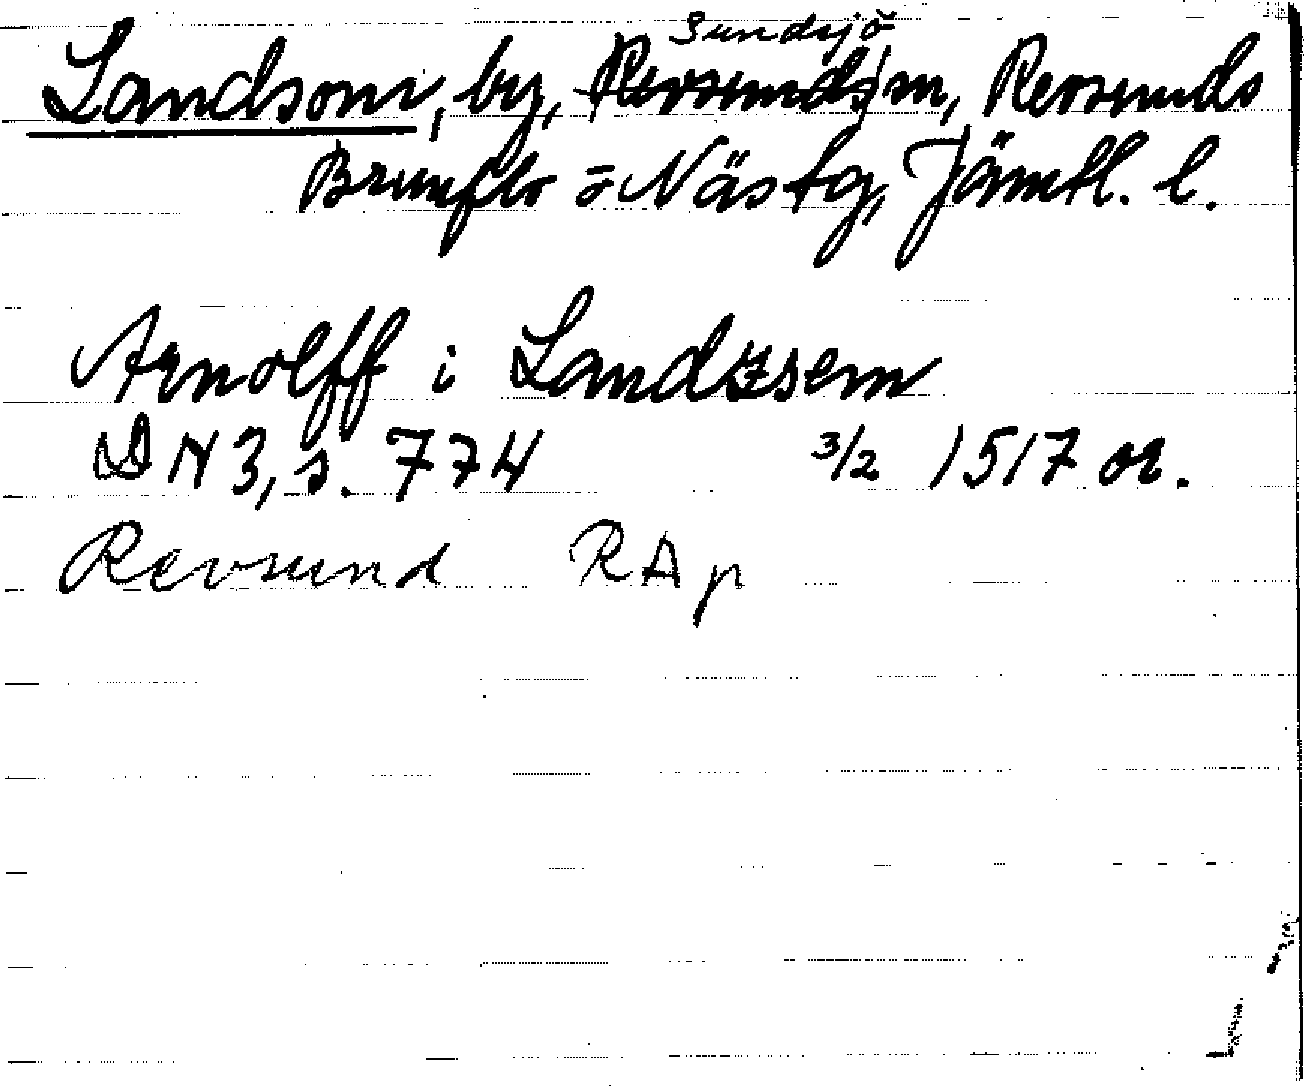 Sundsjö
Landsom, by, Revsunds sn, Revsunds
Brunflo o Näs tg, Jämtl. l.
Arnolff i Landzsem
DN 3, s. 774 3/2 1517 or.
Revsund RAp